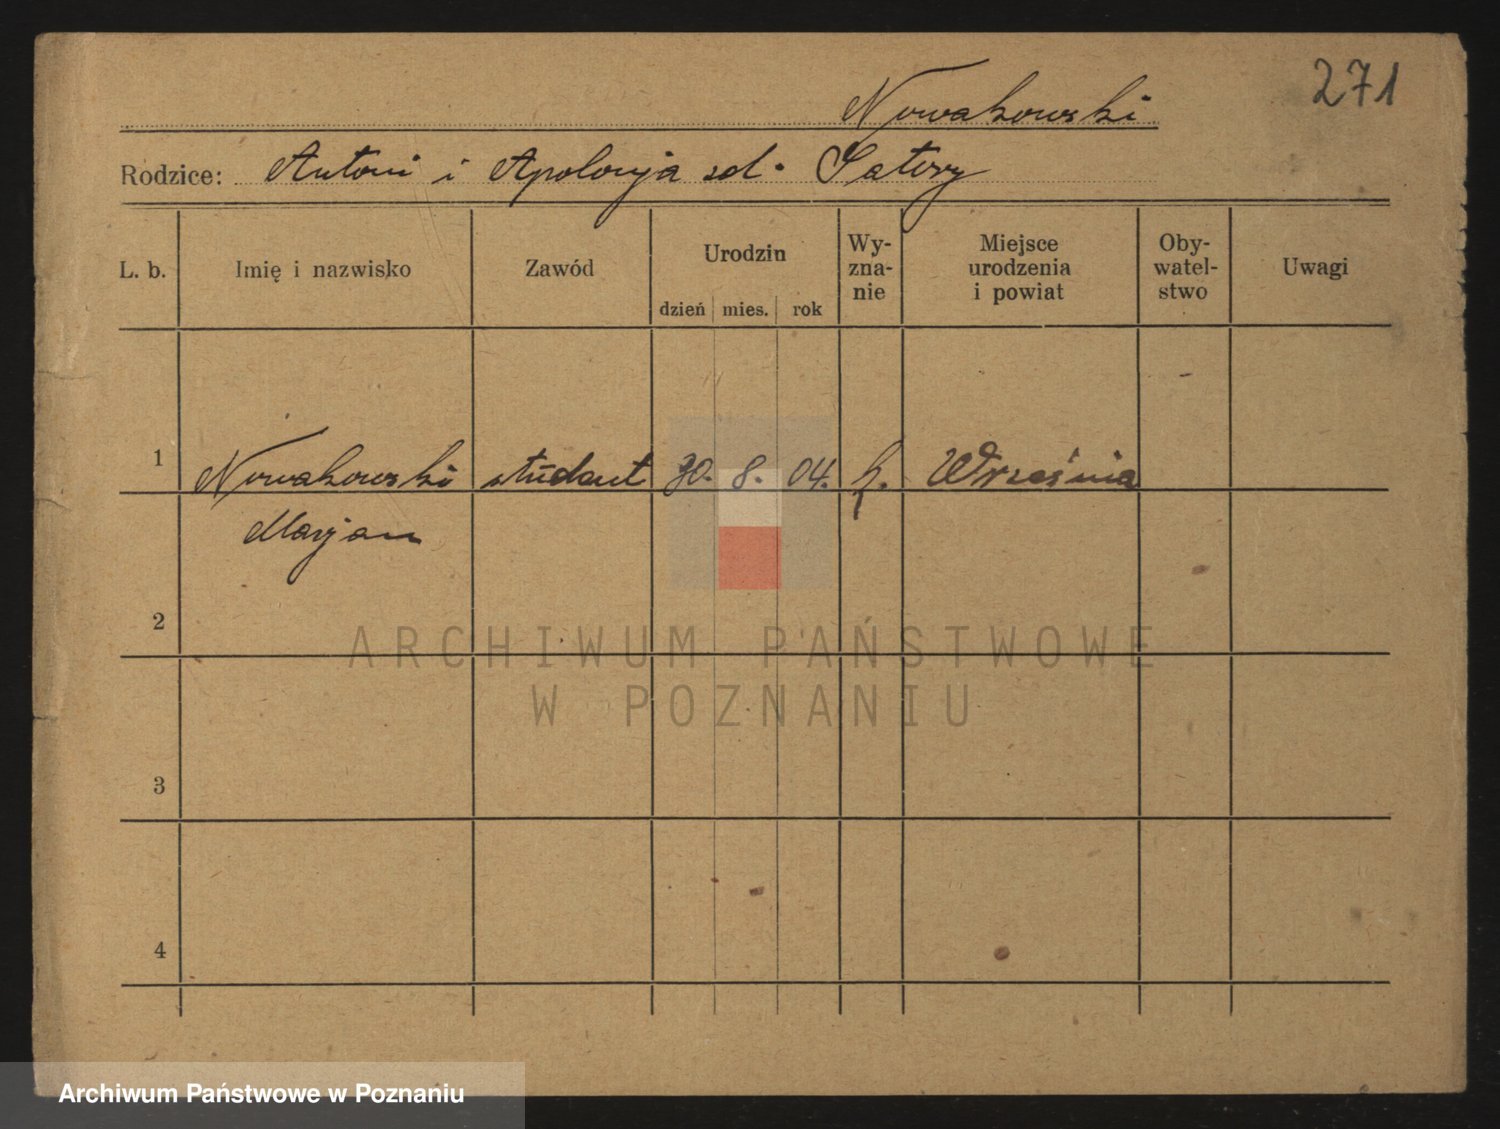 271
Nowakowski
Rodzice: Antoni i Apolonja zd. Satory
L. b. Imię i nazwisko Zawód Urodzin dzień mies. rok Wy-zna-nie Miejsce urodzenia i powiat Oby-watel-stwo Uwagi
1 Nowakowski student 30. 8. 04. k. Września
Marjan
2
ARCHIWUM PAŃSTWOWE
W POZNANIU
3
4
Archiwum Państwowe w Poznaniu